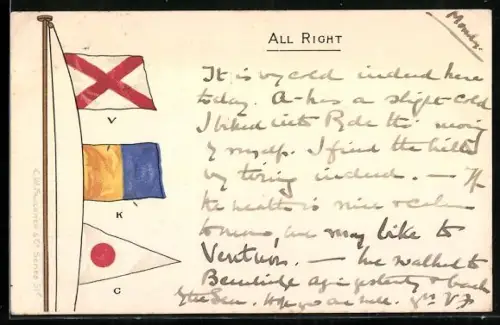 Monday.
ALL RIGHT
V
K
C
It is vy cold indeed here
today. A- has a slight cold
I biked into Ryde this morning
by myself. I find the hills
vy tiring indeed. — If
the weather is nice & calm
tomorrow, we may bike to
Ventnor. — We walked to
Bembridge again yesterday & back
by the Sea. Hope you are well.